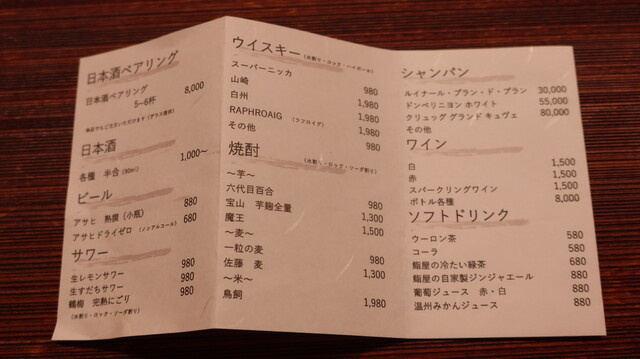 日本酒ペアリング
日本酒ペアリング 8,000
5~6杯
単品でもご注文いただけます(グラス提供)
日本酒
各種 半合(90ml) 1,000~
ビール
アサヒ 熟撰(小瓶) 880
アサヒドライゼロ (ノンアルコール) 680
サワー
生レモンサワー 980
生すだちサワー 980
鶴梅 完熟にごり 980
(水割り・ロック・ソーダ割り)
ウイスキー (水割り・ロック・ハイボール)
スーパーニッカ 980
山崎 1,980
白州 1,980
RAPHROAIG (ラフロイグ) 1,980
その他 980
焼酎 (水割り・ロック・ソーダ割り)
~芋~
六代目百合 980
宝山 芋麹全量 1,300
魔王 1,500
~麦~
一粒の麦 980
佐藤 麦 1,300
~米~
鳥飼 1,980
シャンパン
ルイナール・ブラン・ド・ブラン 30,000
ドンペリニヨン ホワイト 55,000
クリュッグ グランド キュヴェ 80,000
その他
ワイン
白 1,500
赤 1,500
スパークリングワイン 1,500
ボトル各種 8,000
ソフトドリンク
ウーロン茶 580
コーラ 580
鮨屋の冷たい緑茶 680
鮨屋の自家製ジンジャエール 880
葡萄ジュース 赤・白 880
温州みかんジュース 880